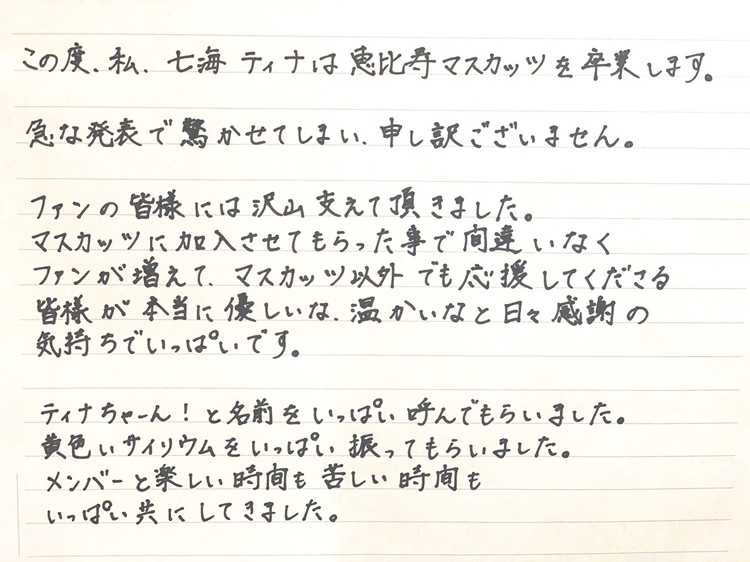 この度、私、七海ティナは恵比寿マスカッツを卒業します。
急な発表で驚かせてしまい、申し訳ございません。
ファンの皆様には沢山支えて頂きました。
マスカッツに加入させてもらった事で間違いなく
ファンが増えて、マスカッツ以外でも応援してくださる
皆様が本当に優しいな、温かいなと日々感謝の
気持ちでいっぱいです。
ティナちゃーん！と名前をいっぱい呼んでもらいました。
黄色いサイリウムをいっぱい振ってもらいました。
メンバーと楽しい時間も苦しい時間も
いっぱい共にしてきました。